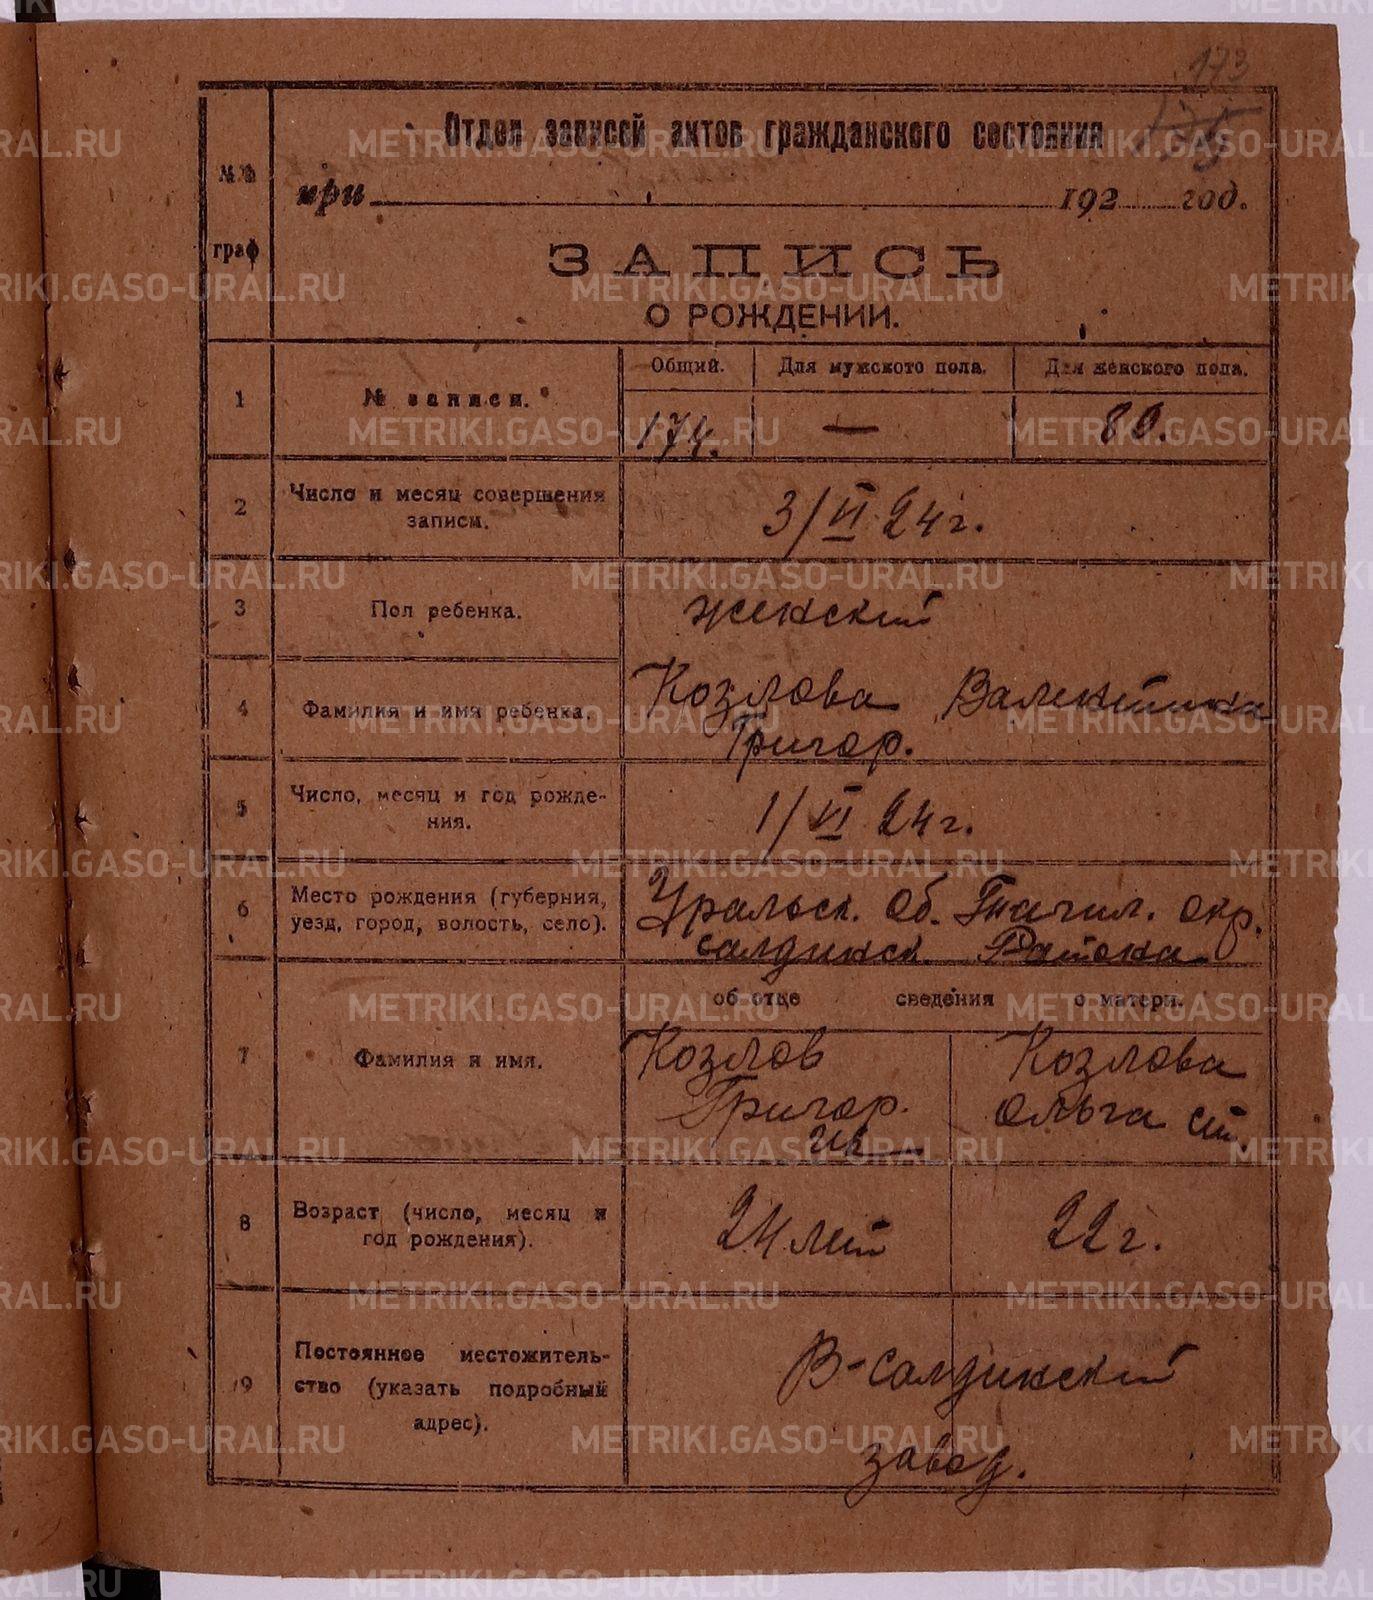 173
Отдел записей актов гражданского состояния
при 192 год.
№№ граф
ЗАПИСЬ
О РОЖДЕНИИ.
1 № записи. Общий. Для мужского пола. Для женского пола.
174. — 80.
2 Число и месяц совершения записи. 3/VI 24 г.
3 Пол ребенка. женский
4 Фамилия и имя ребенка. Козлова Валентина
Григор.
5 Число, месяц и год рожде-
ния. 1/VI 24 г.
6 Место рождения (губерния, Уральск. Об. Тагил. окр.
уезд, город, волость, село). салдинск. Района
об отце сведения о матери.
7 Фамилия и имя. Козлов Козлова
Григор. Ольга
8 Возраст (число, месяц и
год рождения). 24 лет 22 г.
9 Постоянное местожитель-
ство (указать подробный
адрес). В-салдинский
завод.
METRIKI.GASO-URAL.RU